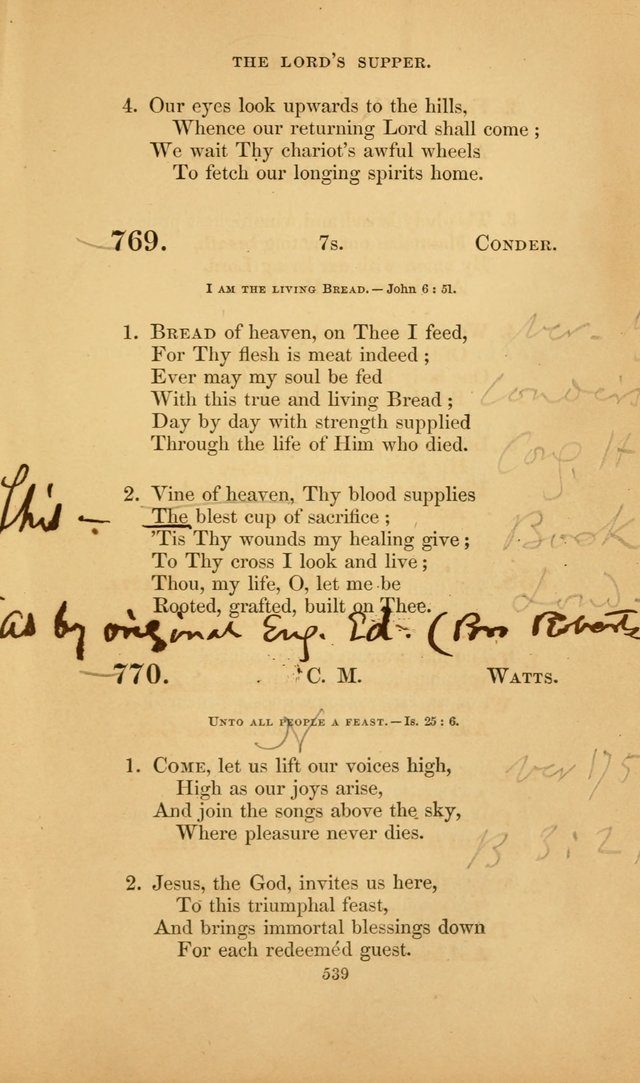 THE LORD'S SUPPER.
4. Our eyes look upwards to the hills,
Whence our returning Lord shall come;
We wait Thy chariot's awful wheels
To fetch our longing spirits home.
769. 7s. CONDER.
I AM THE LIVING BREAD.—John 6:51.
1. BREAD of heaven, on Thee I feed,
For Thy flesh is meat indeed;
Ever may my soul be fed
With this true and living Bread;
Day by day with strength supplied
Through the life of Him who died.
ver.
Conders
Cong. H
Book
Lond.
2. Vine of heaven, Thy blood supplies
The blest cup of sacrifice;
'Tis Thy wounds my healing give;
To Thy cross I look and live;
Thou, my life, O, let me be
Rooted, grafted, built on Thee.
This —
as by original Eng. Ed. (Bro Roberts
770. C. M. WATTS.
UNTO ALL PEOPLE A FEAST.—Is. 25:6.
N
1. COME, let us lift our voices high,
High as our joys arise,
And join the songs above the sky,
Where pleasure never dies.
ver 175
B 3:2
2. Jesus, the God, invites us here,
To this triumphal feast,
And brings immortal blessings down
For each redeeméd guest.
539